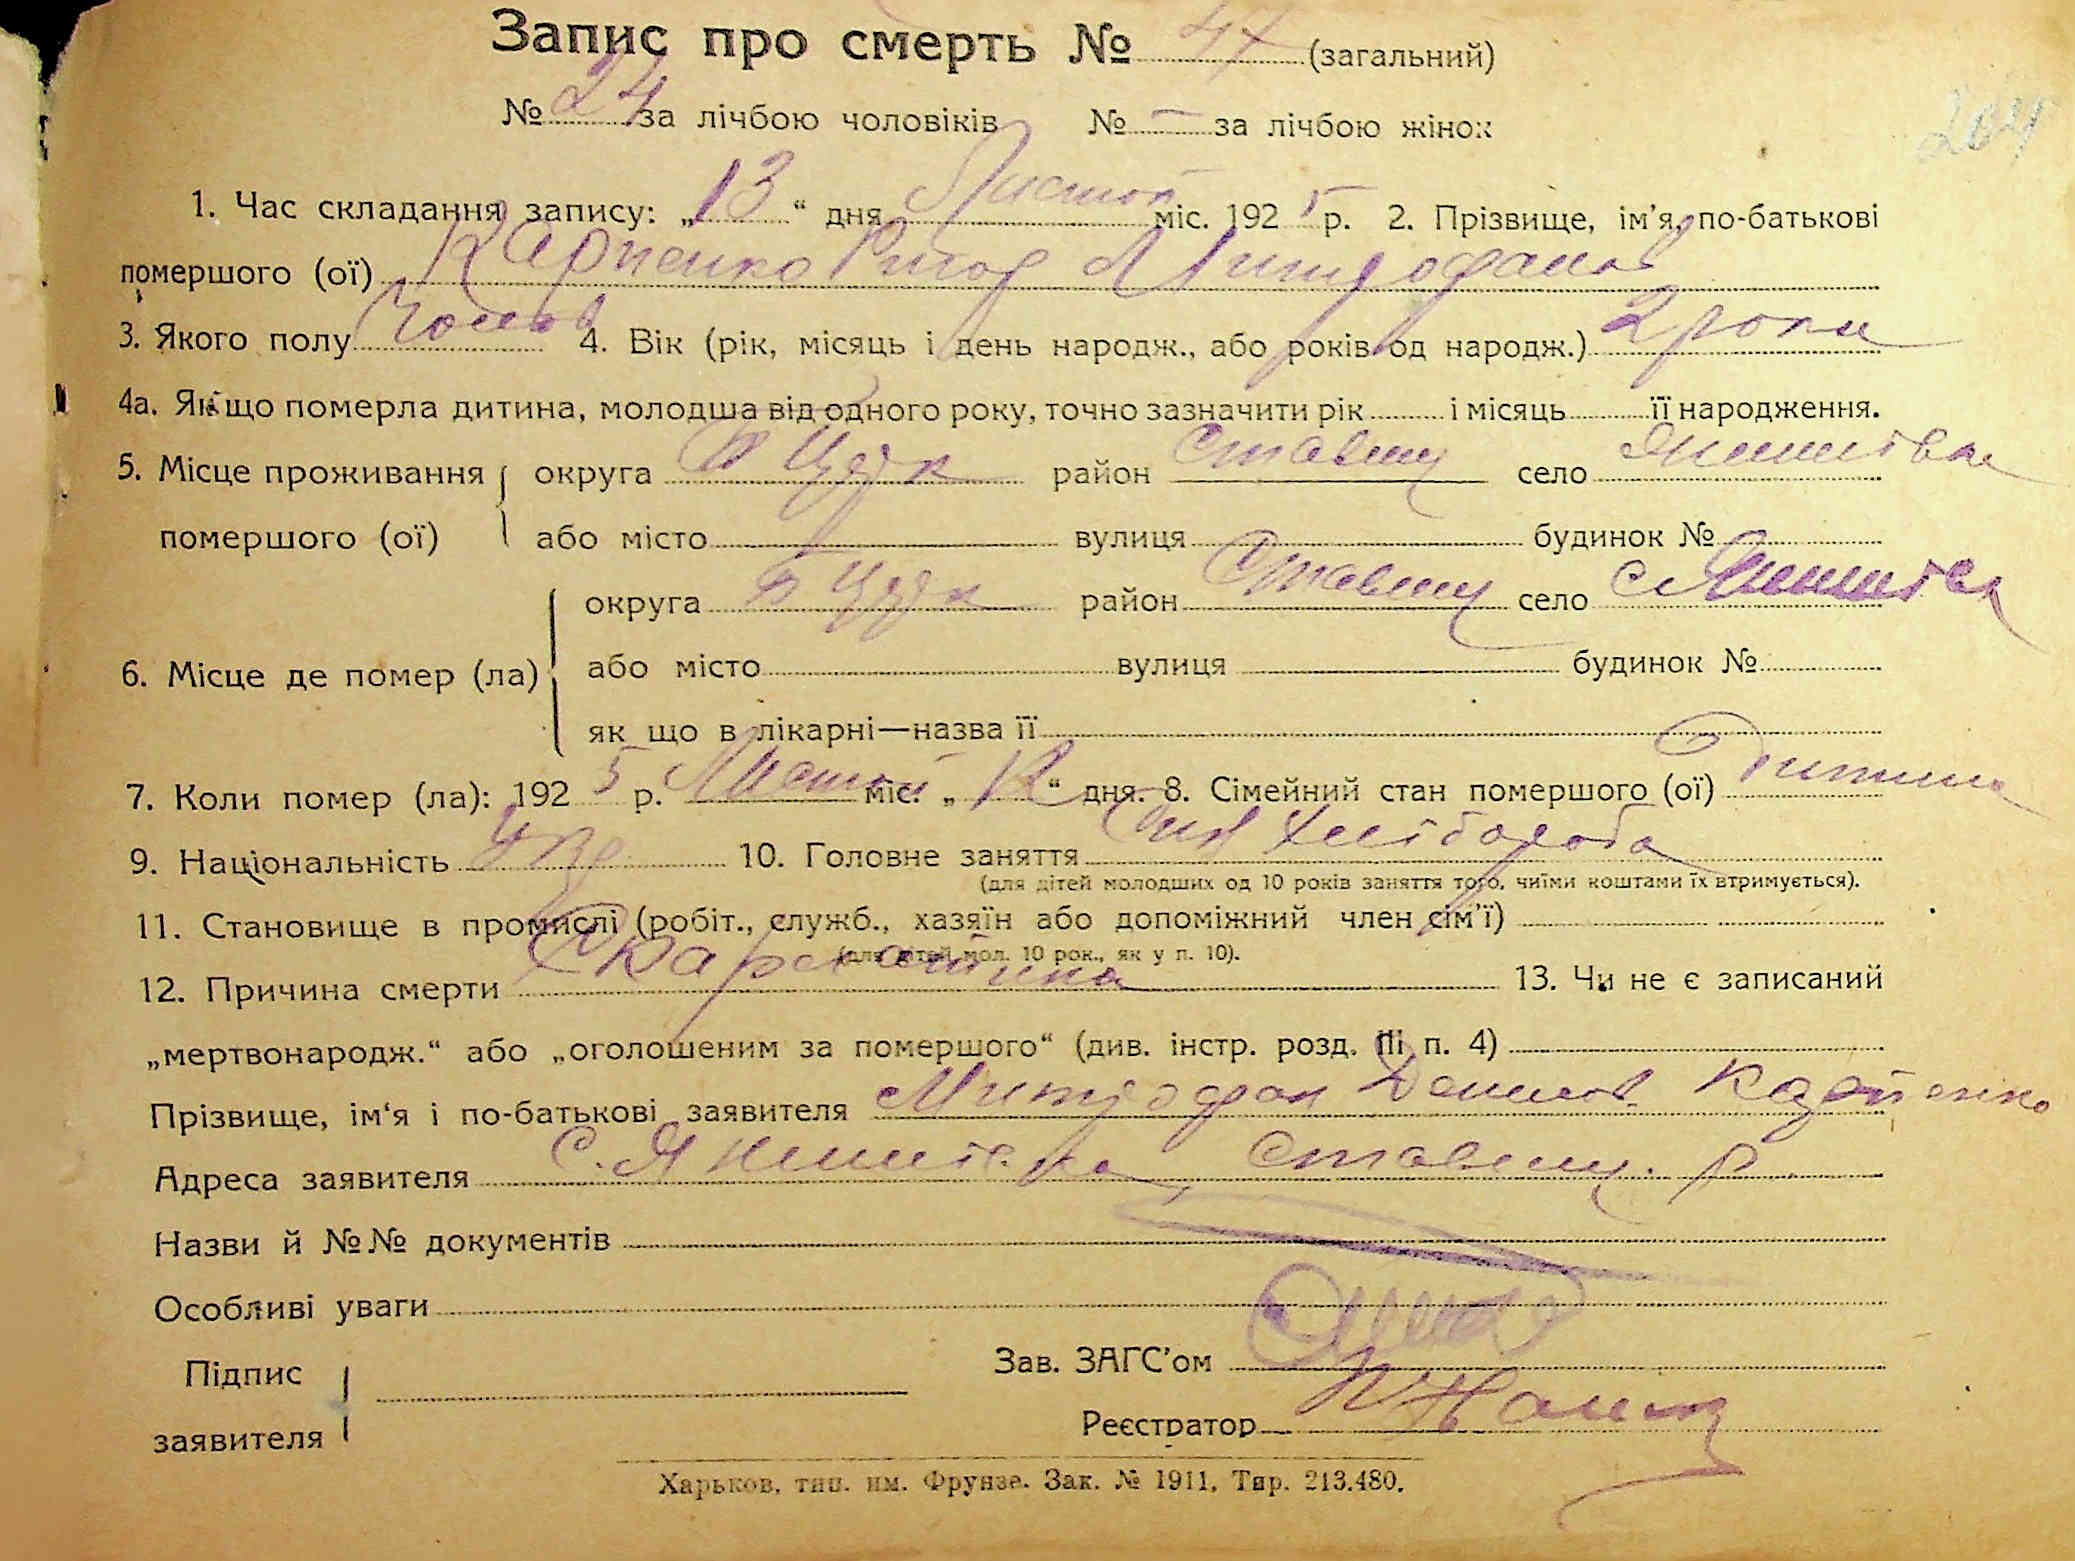 Запис про смерть № 47 (загальний)
204
№ 24 за лічбою чоловіків № — за лічбою жінок
1. Час складання запису: „13“ дня Листоп міс. 1925 р. 2. Прізвище, ім'я, по-батькові
помершого (ої) Карпенко Григор Митрофанов
3. Якого полу Чолов 4. Вік (рік, місяць і день народж., або років од народж.) 2 роки
4а. Якщо померла дитина, молодша від одного року, точно зазначити рік і місяць її народження.
5. Місце проживання округа Б Церк район Ставищ село Янишівка
помершого (ої) або місто вулиця будинок №
округа Б Церк район Ставищ село с Янишівка
6. Місце де помер (ла) або місто вулиця будинок №
як що в лікарні—назва її
7. Коли помер (ла): 1925 р. Листоп міс. „12“ дня. 8. Сімейний стан помершого (ої) Дитина
9. Національність Укр 10. Головне заняття Син хлібороба
(для дітей молодших од 10 років заняття того, чиїми коштами їх втримується).
11. Становище в промислі (робіт., служб., хазяїн або допоміжний член сім'ї)
(для дітей мол. 10 рок., як у п. 10).
12. Причина смерти Скарлатина 13. Чи не є записаний
„мертвонародж.“ або „оголошеним за помершого“ (див. інстр. розд. III п. 4)
Прізвище, ім'я і по-батькові заявителя Митрофан Демидов Карпенко
Адреса заявителя с. Янишівка Ставищ. р.
Назви й №№ документів
Особливі уваги
Підпис
заявителя
Зав. ЗАГС'ом
Реєстратор
Харьков, тип. им. Фрунзе. Зак. № 1911, Тир. 213.480.